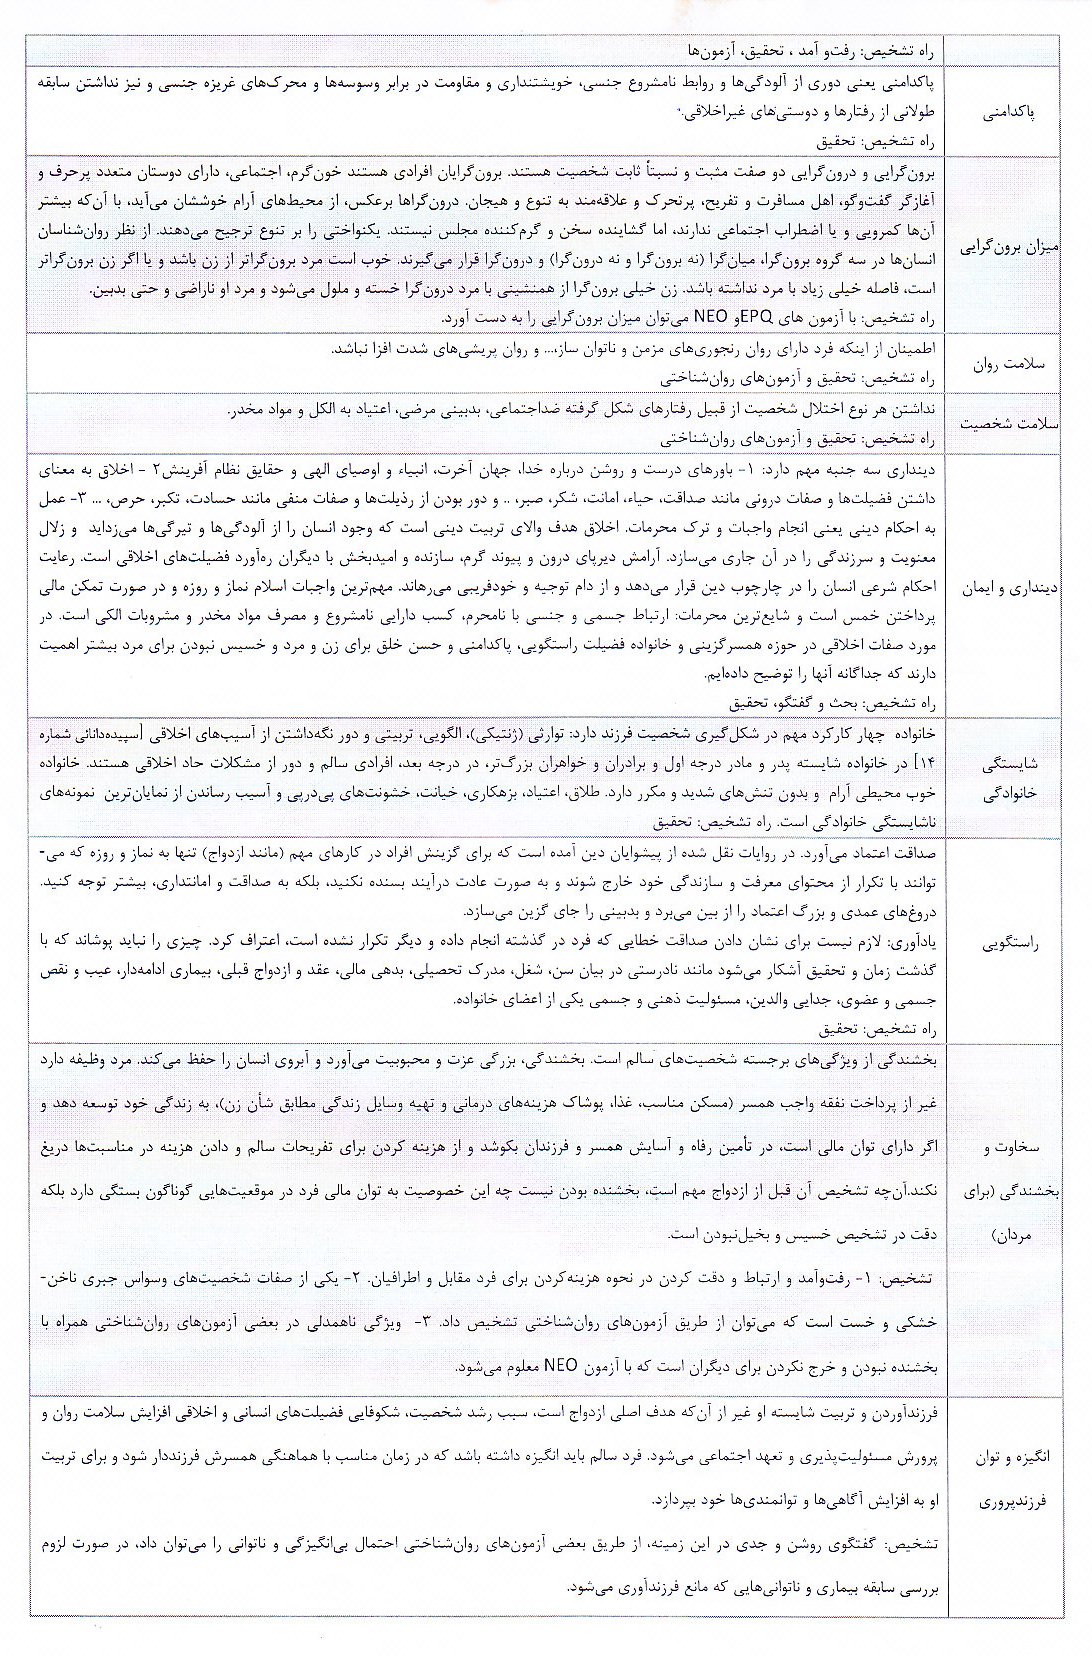 راه تشخیص: رفت‌و آمد ، تحقیق، آزمون‌ها
پاکدامنی
پاکدامنی یعنی دوری از آلودگی‌ها و روابط نامشروع جنسی، خویشتنداری و مقاومت در برابر وسوسه‌ها و محرک‌های غریزه جنسی و نیز نداشتن سابقه
طولانی از رفتارها و دوستی‌های غیراخلاقی.
راه تشخیص: تحقیق
میزان برون‌گرایی
برون‌گرایی و درون‌گرایی دو صفت مثبت و نسبتاً ثابت شخصیت هستند. برون‌گرایان افرادی هستند خون‌گرم، اجتماعی، دارای دوستان متعدد پرحرف و
آغازگر گفت‌وگو، اهل مسافرت و تفریح، پرتحرک و علاقه‌مند به تنوع و هیجان. درون‌گراها برعکس، از محیط‌های آرام خوششان می‌آید، با آن‌که بیشتر
آن‌ها کمرویی و یا اضطراب اجتماعی ندارند، اما گشاینده سخن و گرم‌کننده مجلس نیستند. یکنواختی را بر تنوع ترجیح می‌دهند. از نظر روان‌شناسان
انسان‌ها در سه گروه برون‌گرا، میان‌گرا (نه برون‌گرا و نه درون‌گرا) و درون‌گرا قرار می‌گیرند. خوب است مرد برون‌گراتر از زن باشد و یا اگر زن برون‌گراتر
است، فاصله خیلی زیاد با مرد نداشته باشد. زن خیلی برون‌گرا از همنشینی با مرد درون‌گرا خسته و ملول می‌شود و مرد او ناراضی و حتی بدبین.
راه تشخیص: با آزمون های EPQو NEO می‌توان میزان برون‌گرایی را به دست آورد.
سلامت روان
اطمینان از اینکه فرد دارای روان رنجوری‌های مزمن و ناتوان ساز،... و روان پریشی‌های شدت افزا نباشد.
راه تشخیص: تحقیق و آزمون‌های روان‌شناختی
سلامت شخصیت
نداشتن هر نوع اختلال شخصیت از قبیل رفتارهای شکل گرفته ضداجتماعی، بدبینی مرضی، اعتیاد به الکل و مواد مخدر.
راه تشخیص: تحقیق و آزمون‌های روان‌شناختی
دینداری و ایمان
دینداری سه جنبه مهم دارد: ۱- باورهای درست و روشن درباره خدا، جهان آخرت، انبیاء و اوصیای الهی و حقایق نظام آفرینش۲ - اخلاق به معنای
داشتن فضیلت‌ها و صفات درونی مانند صداقت، حیاء، امانت، شکر، صبر، .. و دور بودن از رذیلت‌ها و صفات منفی مانند حسادت، تکبر، حرص، ... ۳- عمل
به احکام دینی یعنی انجام واجبات و ترک محرمات. اخلاق هدف والای تربیت دینی است که وجود انسان را از آلودگی‌ها و تیرگی‌ها می‌زداید و زلال
معنویت و سرزندگی را در آن جاری می‌سازد. آرامش دیرپای درون و پیوند گرم، سازنده و امیدبخش با دیگران ره‌آورد فضیلت‌های اخلاقی است. رعایت
احکام شرعی انسان را در چارچوب دین قرار می‌دهد و از دام توجیه و خودفریبی می‌رهاند. مهم‌ترین واجبات اسلام نماز و روزه و در صورت تمکن مالی
پرداختن خمس است و شایع‌ترین محرمات: ارتباط جسمی و جنسی با نامحرم، کسب دارایی نامشروع و مصرف مواد مخدر و مشروبات الکی است. در
مورد صفات اخلاقی در حوزه همسرگزینی و خانواده فضیلت راستگویی، پاکدامنی و حسن خلق برای زن و مرد و خسیس نبودن برای مرد بیشتر اهمیت
دارند که جداگانه آنها را توضیح داده‌ایم.
راه تشخیص: بحث و گفتگو، تحقیق
شایستگی
خانوادگی
خانواده چهار کارکرد مهم در شکل‌گیری شخصیت فرزند دارد: توارثی (ژنتیکی)، الگویی، تربیتی و دور نگه‌داشتن از آسیب‌های اخلاقی [سپیده‌دانائی شماره
۱۴] در خانواده شایسته پدر و مادر درجه اول و برادران و خواهران بزرگ‌تر، در درجه بعد، افرادی سالم و دور از مشکلات حاد اخلاقی هستند. خانواده
خوب محیطی آرام و بدون تنش‌های شدید و مکرر دارد. طلاق، اعتیاد، بزهکاری، خیانت، خشونت‌های پی‌درپی و آسیب رساندن از نمایان‌ترین نمونه‌های
ناشایستگی خانوادگی است. راه تشخیص: تحقیق
راستگویی
صداقت اعتماد می‌آورد. در روایات نقل شده از پیشوایان دین آمده است که برای گزینش افراد در کارهای مهم (مانند ازدواج) تنها به نماز و روزه که می-
توانند با تکرار از محتوای معرفت و سازندگی خود خارج شوند و به صورت عادت درآیند بسنده نکنید، بلکه به صداقت و امانتداری، بیشتر توجه کنید.
دروغ‌های عمدی و بزرگ اعتماد را از بین می‌برد و بدبینی را جای گزین می‌سازد.
یادآوری: لازم نیست برای نشان دادن صداقت خطایی که فرد در گذشته انجام داده و دیگر تکرار نشده است، اعتراف کرد. چیزی را نباید پوشاند که با
گذشت زمان و تحقیق آشکار می‌شود مانند نادرستی در بیان سن، شغل، مدرک تحصیلی، بدهی مالی، عقد و ازدواج قبلی، بیماری ادامه‌دار، عیب و نقص
جسمی و عضوی، جدایی والدین، مسئولیت ذهنی و جسمی یکی از اعضای خانواده.
راه تشخیص: تحقیق
سخاوت و
بخشندگی (برای
مردان)
بخشندگی از ویژگی‌های برجسته شخصیت‌های سالم است. بخشندگی، بزرگی عزت و محبوبیت می‌آورد و آبروی انسان را حفظ می‌کند. مرد وظیفه دارد
غیر از پرداخت نفقه واجب همسر (مسکن مناسب، غذا، پوشاک هزینه‌های درمانی و تهیه وسایل زندگی مطابق شأن زن)، به زندگی خود توسعه دهد و
اگر دارای توان مالی است، در تأمین رفاه و آسایش همسر و فرزندان بکوشد و از هزینه کردن برای تفریحات سالم و دادن هزینه در مناسبت‌ها دریغ
نکند.آن‌چه تشخیص آن قبل از ازدواج مهم است، بخشنده بودن نیست چه این خصوصیت به توان مالی فرد در موقعیت‌هایی گوناگون بستگی دارد بلکه
دقت در تشخیص خسیس و بخیل‌نبودن است.
تشخیص: ۱- رفت‌وآمد و ارتباط و دقت کردن در نحوه هزینه‌کردن برای فرد مقابل و اطرافیان. ۲- یکی از صفات شخصیت‌های وسواس جبری ناخن-
خشکی و خست است که می‌توان از طریق آزمون‌های روان‌شناختی تشخیص داد. ۳- ویژگی ناهمدلی در بعضی آزمون‌های روان‌شناختی همراه با
بخشنده نبودن و خرج نکردن برای دیگران است که با آزمون NEO معلوم می‌شود.
انگیزه و توان
فرزندپروری
فرزندآوردن و تربیت شایسته او غیر از آن‌که هدف اصلی ازدواج است، سبب رشد شخصیت، شکوفایی فضیلت‌های انسانی و اخلاقی افزایش سلامت روان و
پرورش مسئولیت‌پذیری و تعهد اجتماعی می‌شود. فرد سالم باید انگیزه داشته باشد که در زمان مناسب با هماهنگی همسرش فرزنددار شود و برای تربیت
او به افزایش آگاهی‌ها و توانمندی‌ها خود بپردازد.
تشخیص: گفتگوی روشن و جدی در این زمینه، از طریق بعضی آزمون‌های روان‌شناختی احتمال بی‌انگیزگی و ناتوانی را می‌توان داد، در صورت لزوم
بررسی سابقه بیماری و ناتوانی‌هایی که مانع فرزندآوری می‌شود.